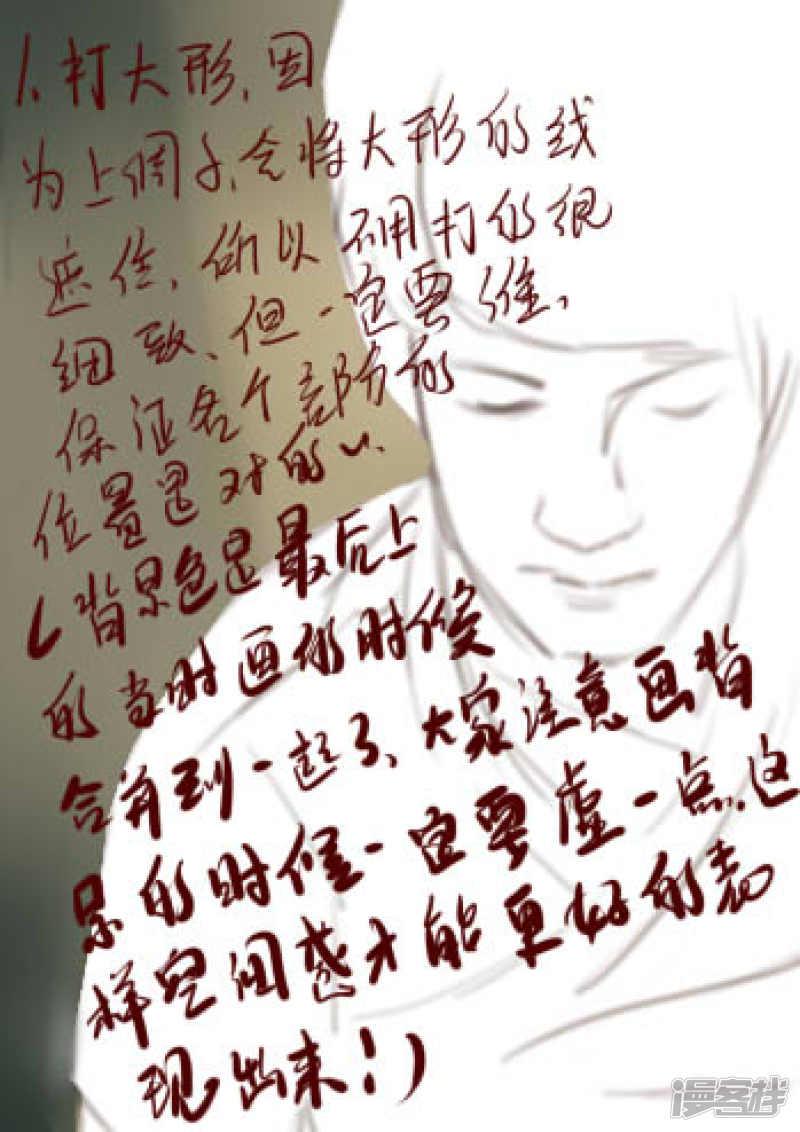 1、打大形、因
为上调子、会将大形的线
遮住、所以不用打的很
细致、但一定要准、
保证各个部分的
位置是对的
(背景色是最后上
的当时画的时候
合并到一起了、大家注意画背
景的时候一定要虚一点、这
样空间感才能更好的表
现出来！)
漫客栈